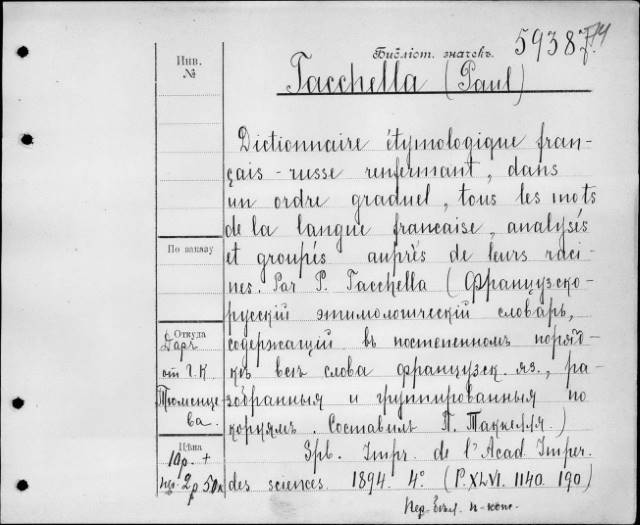 Библіот. значекъ. 5938
Инв.
№
Tacchella (Paul)
Dictionnaire étymologique fran-
çais-russe renfermant, dans
un ordre graduel, tous les mots
de la langue francaise, analysés
По заказу
et groupés auprès de leurs raci-
nes. Par P. Tacchella (Французско-
русскій этимологическій словарь,
Откуда
содержащій въ постепенномъ поряд-
Даръ
отъ Г. К
Тюменце
ва.
кѣ всѣ слова французск. яз., ра-
зобранныя и группированныя по
корнямъ. Составилъ П. Таккелля.)
Цѣна
10р. +
2р 50к
Spb. Impr. de l'Acad Imper.
des sciences 1894. 4° (P. XLVI. 1140. 190)